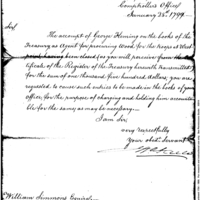 Comptrollers Office
January 28th 1799.
Sir
The account of George Fleming on the books of the
Treasury as Agent for procuring Wood for the troops at West
having been closed (as you will perceive from
tificate of the Register of the Treasury herewith transmitted)
for the sum of one thousand four hundred dollars, you are
requested to cause such entries to be made in the books of your
office, for the purpose of charging and holding him accounta-
ble for the same as may be necessary.
I am Sir
very respectfully
Your obdt. Servant
William Simmons Esquire